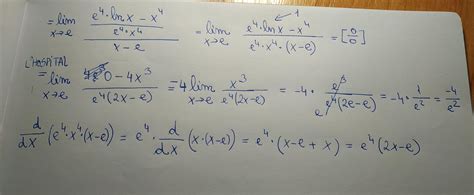 = lim x→e ((e⁴·ln x − x⁴)/(e⁴·x⁴))/(x − e) = lim x→e (e⁴·ln x − x⁴)/(e⁴·x⁴·(x−e)) = [0/0]
1
L'HOSPITAL
= lim x→e (0 − 4x³)/(e⁴(2x−e)) = −4 lim x→e x³/(e⁴(2x−e)) = −4· e³/(e⁴(2e−e)) = −4· 1/e² = −4/e²
d/dx (e⁴·x⁴·(x−e)) = e⁴· d/dx (x·(x−e)) = e⁴·(x−e+x) = e⁴(2x−e)